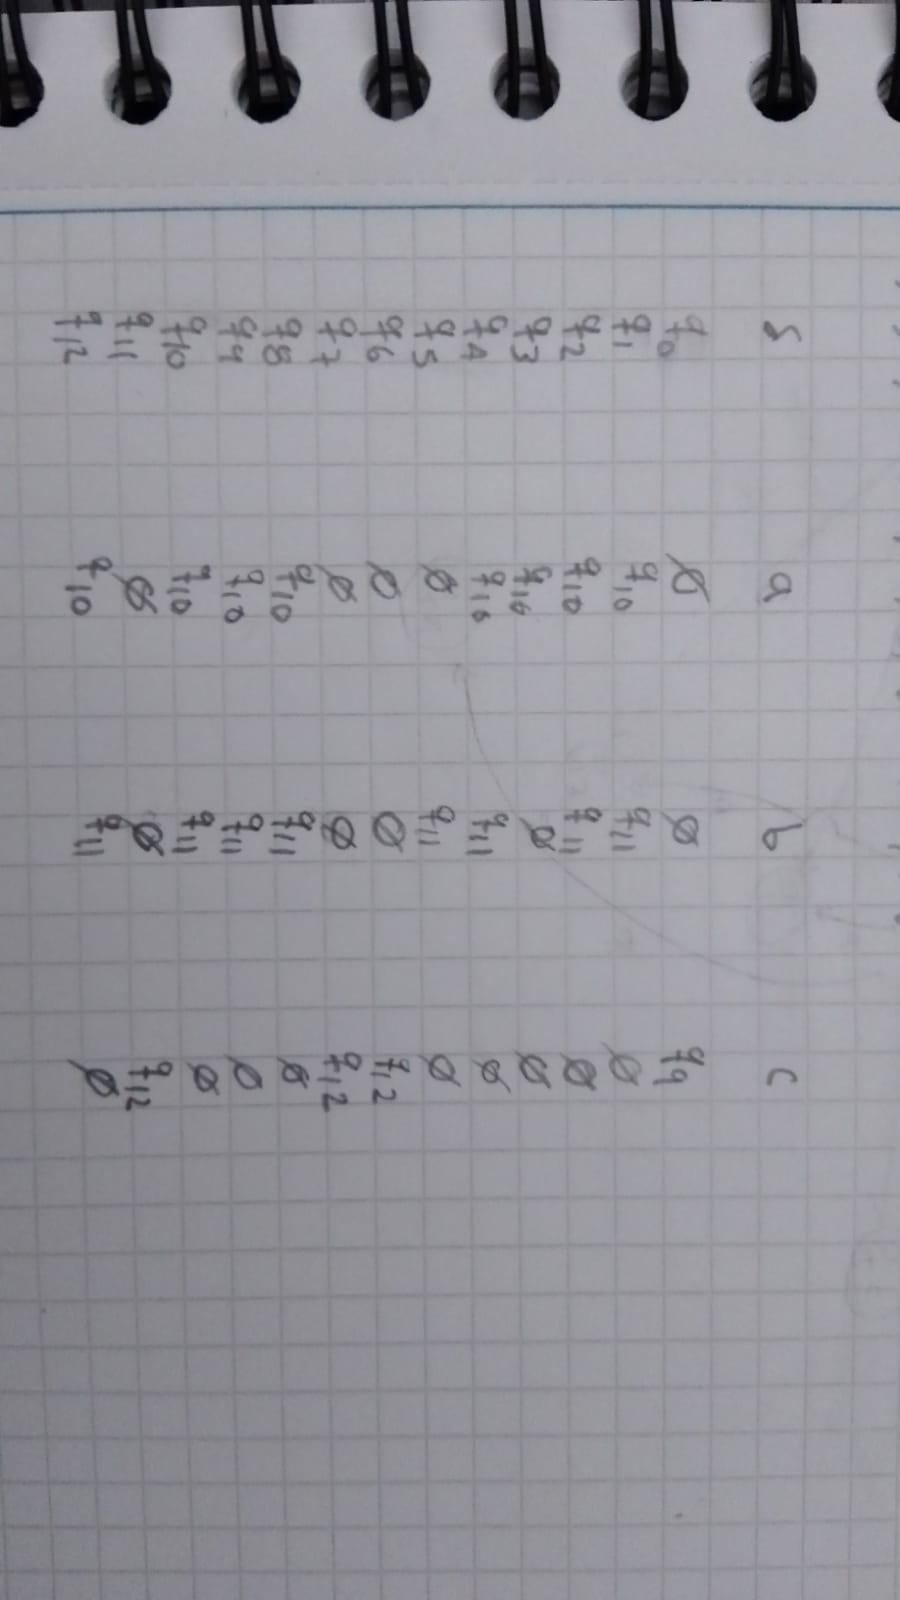 δ a b c
q0 ∅ ∅ q9
q1 q10 q11 ∅
q2 q10 q11 ∅
q3 q10 ∅ ∅
q4 q10 q11 ∅
q5 ∅ q11 ∅
q6 ∅ ∅ q12
q7 ∅ ∅ q12
q8 q10 q11 ∅
q9 q10 q11 ∅
q10 q10 q11 ∅
q11 ∅ ∅ q12
q12 q10 q11 ∅